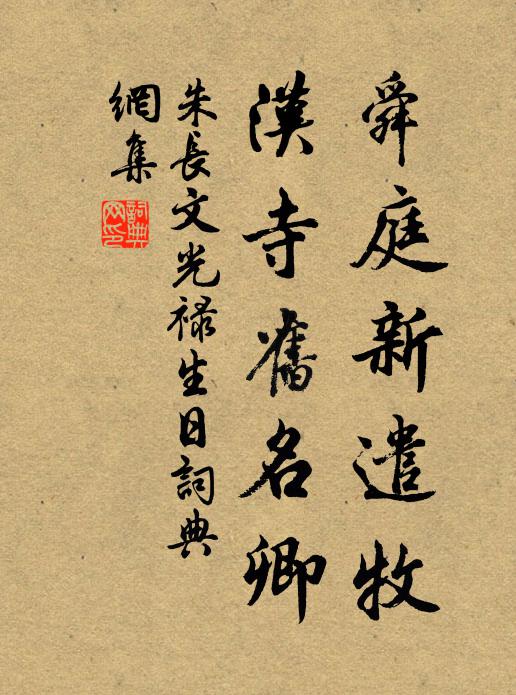 舜庭新遣牧
漢寺舊名卿
朱長文光祿生日詞典
網集
詞典
网印